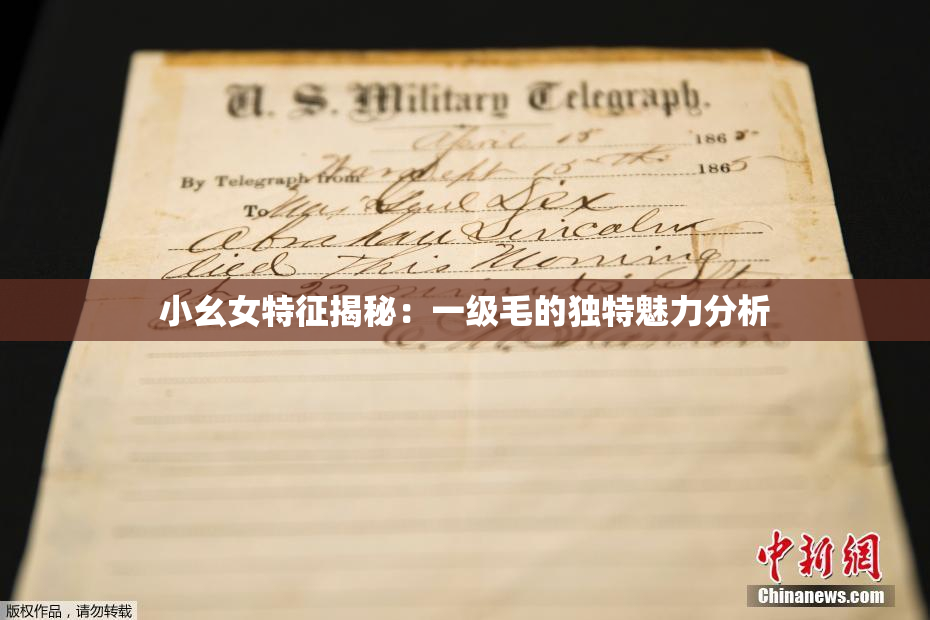 U. S. Military Telegraph.
April 15 1865
By Telegraph from War Dept 15th 1865
To Maj Genl Dix
Abraham Lincoln
died This Morning
at 22 minutes after
小幺女特征揭秘：一级毛的独特魅力分析
E. M. Stanton
中新网
Chinanews.com
版权作品，请勿转载